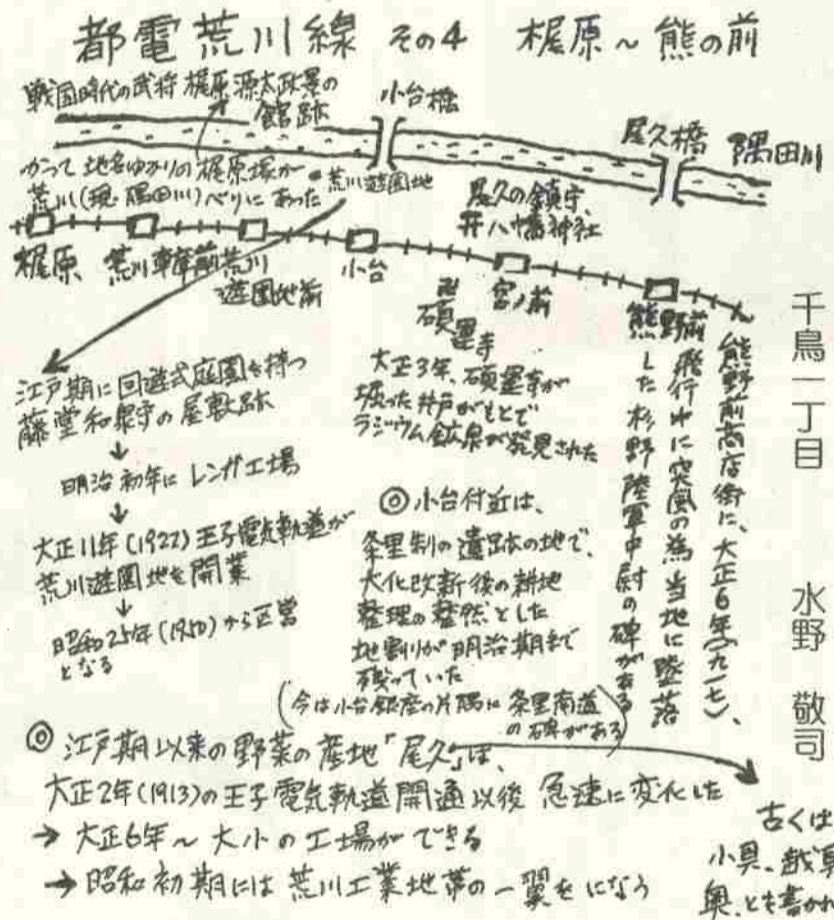 都電荒川線 その4 梶原～熊の前
戦国時代の武将 梶原源太政景の
館跡
かつて 地名ゆかりの梶原塚が
荒川(現・隅田川)べりにあった
小台橋
尾久橋
隅田川
荒川遊園地
尾久の鎮守、
八幡神社
梶原
荒川車庫前
荒川
遊園地前
小台
宮ノ前
熊野前
卍
碩運寺
大正3年、碩運寺が
掘った井戸がもとで
ラジウム鉱泉が発見された
熊野前商店街に、大正6年(一九一七)、
飛行中に突風の為当地に墜落
した杉野陸軍中尉の碑がある
千鳥一丁目 水野 敬司
江戸期に回遊式庭園を持つ
藤堂和泉守の屋敷跡
↓
明治初年に レンガ工場
↓
大正11年(1922)王子電気軌道が
荒川遊園地を開業
↓
昭和25年(1950)から区営
となる
◎小台付近は、
条里制の遺跡の地で、
大化改新後の耕地
整理の整然とした
地割りが明治期まで
残っていた
(今は小台銀座の片隅に 条里南道
の碑がある)
◎ 江戸期以来の野菜の産地「尾久」は、
大正2年(1913)の王子電気軌道開通以後 急速に変化した
→ 大正6年～ 大小の工場ができる
→ 昭和初期には 荒川工業地帯の一翼をになう
古くは
小具、越具
奥 とも書かれ